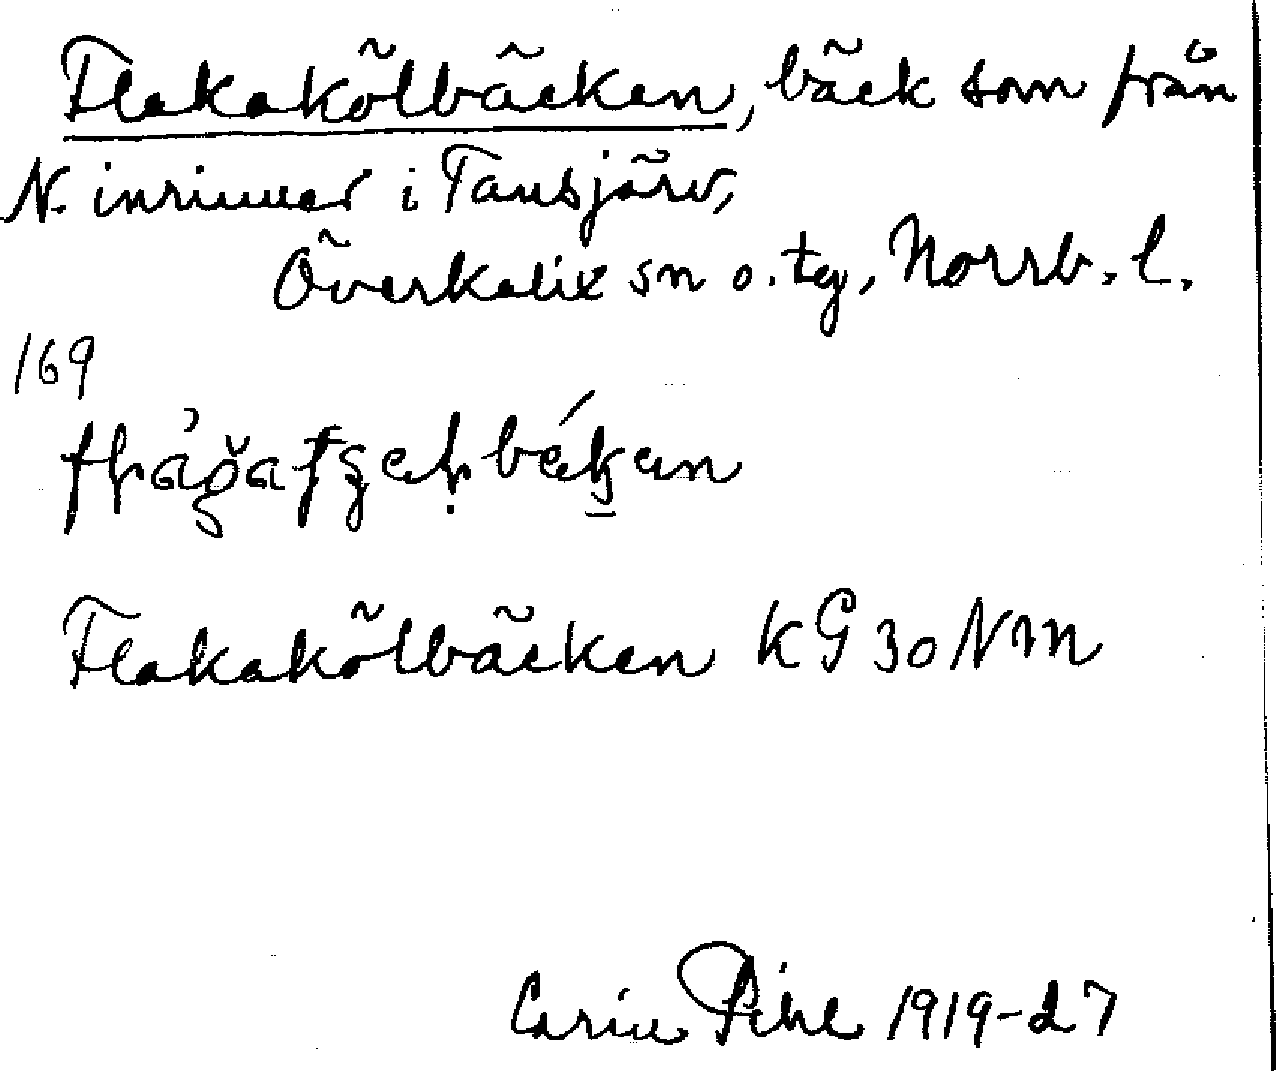 Flakakölbäcken, bäck som från
N. inrinner i Tansjärv,
Överkalix sn o. tg, Norrb. l.
169
Flakakölbäcken KG 30 NM
Carin Pihl 1919-27